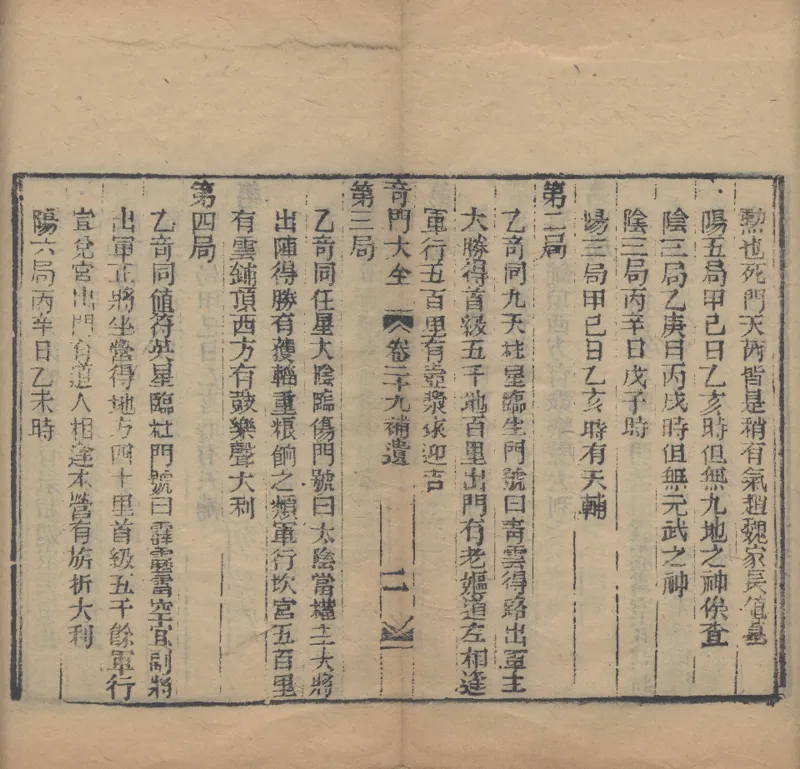 勲也死門天芮皆是稍有氣趙魏家長篇墓
陽五局甲己日乙亥時但無九地之神俟查
陰三局乙庚日丙戌時但無元武之神
陰三局丙辛日戊子時
陽三局甲己日乙亥時有天輔
第二局
乙奇同九天柱星臨生門號曰青雲得路出軍主
大勝得首級五千地百里出門有老嫗道左相逢
軍行五百里有壺漿來迎吉
奇門大全 卷二十九補遺 二
第三局
乙奇同任星太陰臨傷門號曰太陰當權主大將
出陣得勝有獲輜重粮餉之類軍行坎宮五百里
有雲鋪頂西方有鼓樂聲大利
第四局
乙奇同値符英星臨杜門號曰霹靂書空宜副將
出軍正將坐營得地方四十里首級五千餘軍行
宜兌宮出門有道人相逢本營有旂折大利
陽六局丙辛日乙未時